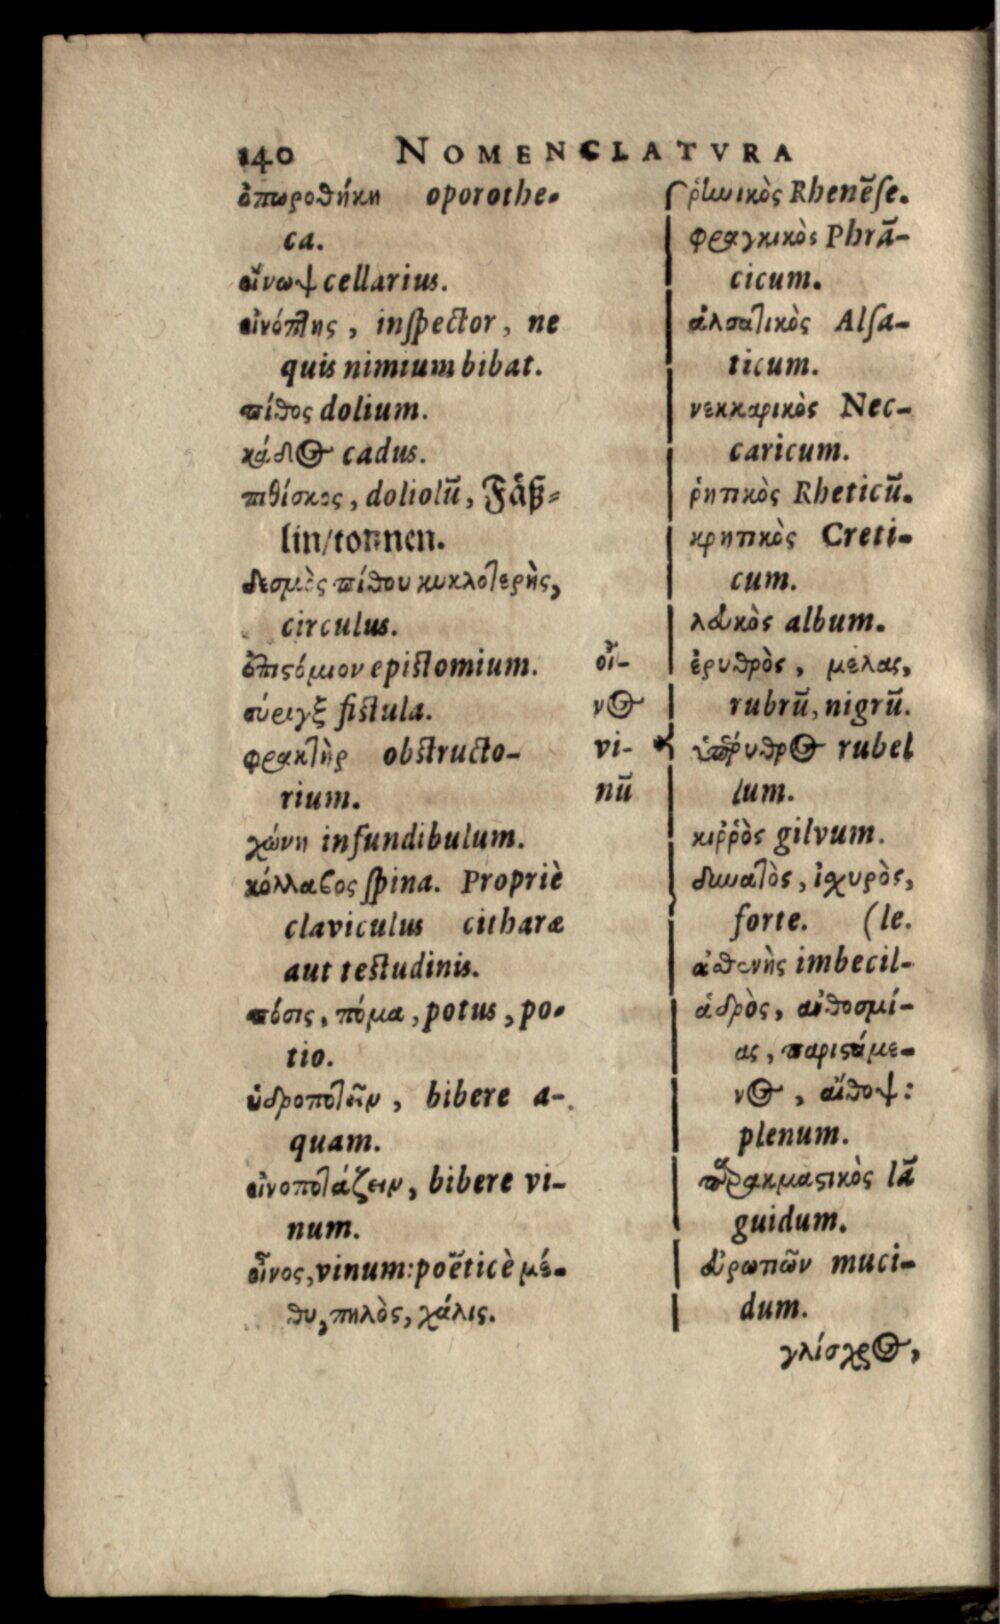 140 NOMENCLATVRA
ὀπωροθήκη oporothe-
ca.
οἴνωψ cellarius.
οἰνόπτης, inſpector, ne
quis nimium bibat.
πίθος dolium.
κάδος cadus.
πιθίσκος, doliolū, Fäß-
lin/tonnen.
δεσμὸς πίθου κυκλοτερὴς,
circulus.
ἐπιςόμιον epiſtomium.
σύριγξ fiſtula.
φρακτὴρ obſtructo-
rium.
χώνη infundibulum.
κόλλαβος ſpina. Propriè
claviculus citharæ
aut teſtudinis.
πόσις, πόμα, potus, po-
tio.
ὑδροποτεῖν, bibere a-
quam.
οἰνοποτάζειν, bibere vi-
num.
οἶνος, vinum: poëticè μέ-
θυ, πηλὸς, χάλις.
οἶ-
νος
vi-
nū
ῥηνικὸς Rhenēſe.
φραγκικὸς Phrā-
cicum.
ἀλσατικὸς Alſa-
ticum.
νεκκαρικὸς Nec-
caricum.
ῥητικὸς Rheticū.
κρητικὸς Creti-
cum.
λευκὸς album.
ἐρυθρὸς, μέλας,
rubrū, nigrū.
ὑπέρυθρος rubel
lum.
κιῤῥὸς gilvum.
δυνατὸς, ἰσχυρὸς,
forte. (le.
ἀσθενὴς imbecil-
ἁδρὸς, ἀνθοσμί-
ας, παριςάμε-
νος, αἴθοψ:
plenum.
παρακμαςικὸς lā
guidum.
εὐρωπῶν muci-
dum.
γλίσχρος,